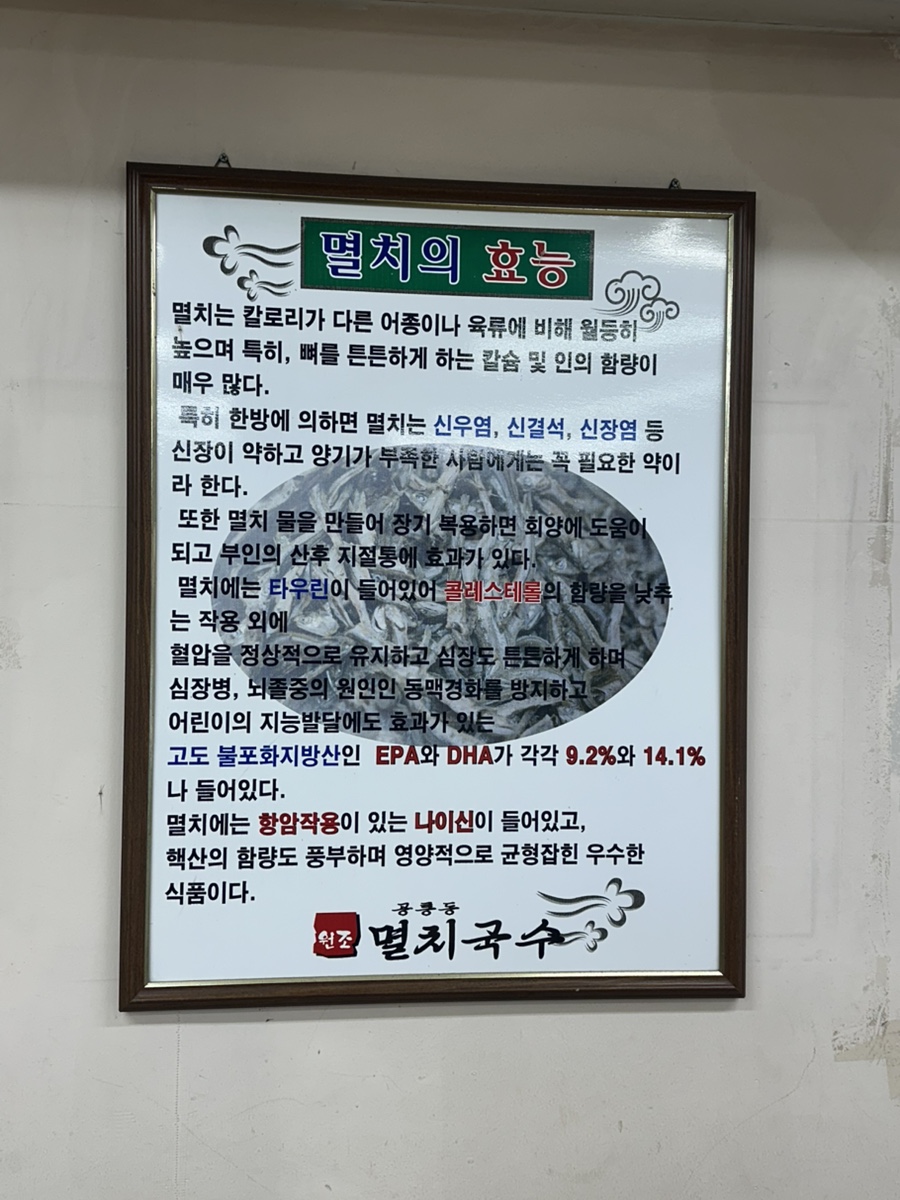 멸치의 효능
멸치는 칼로리가 다른 어종이나 육류에 비해 월등히
높으며 특히, 뼈를 튼튼하게 하는 칼슘 및 인의 함량이
매우 많다.
특히 한방에 의하면 멸치는 신우염, 신결석, 신장염 등
신장이 약하고 양기가 부족한 사람에게는 꼭 필요한 약이
라 한다.
또한 멸치 물을 만들어 장기 복용하면 회양에 도움이
되고 부인의 산후 지절통에 효과가 있다.
멸치에는 타우린이 들어있어 콜레스테롤의 함량을 낮추
는 작용 외에
혈압을 정상적으로 유지하고 심장도 튼튼하게 하며
심장병, 뇌졸중의 원인인 동맥경화를 방지하고
어린이의 지능발달에도 효과가 있는
고도 불포화지방산인 EPA와 DHA가 각각 9.2%와 14.1%
나 들어있다.
멸치에는 항암작용이 있는 나이신이 들어있고,
핵산의 함량도 풍부하며 영양적으로 균형잡힌 우수한
식품이다.
공릉동
원조 멸치국수